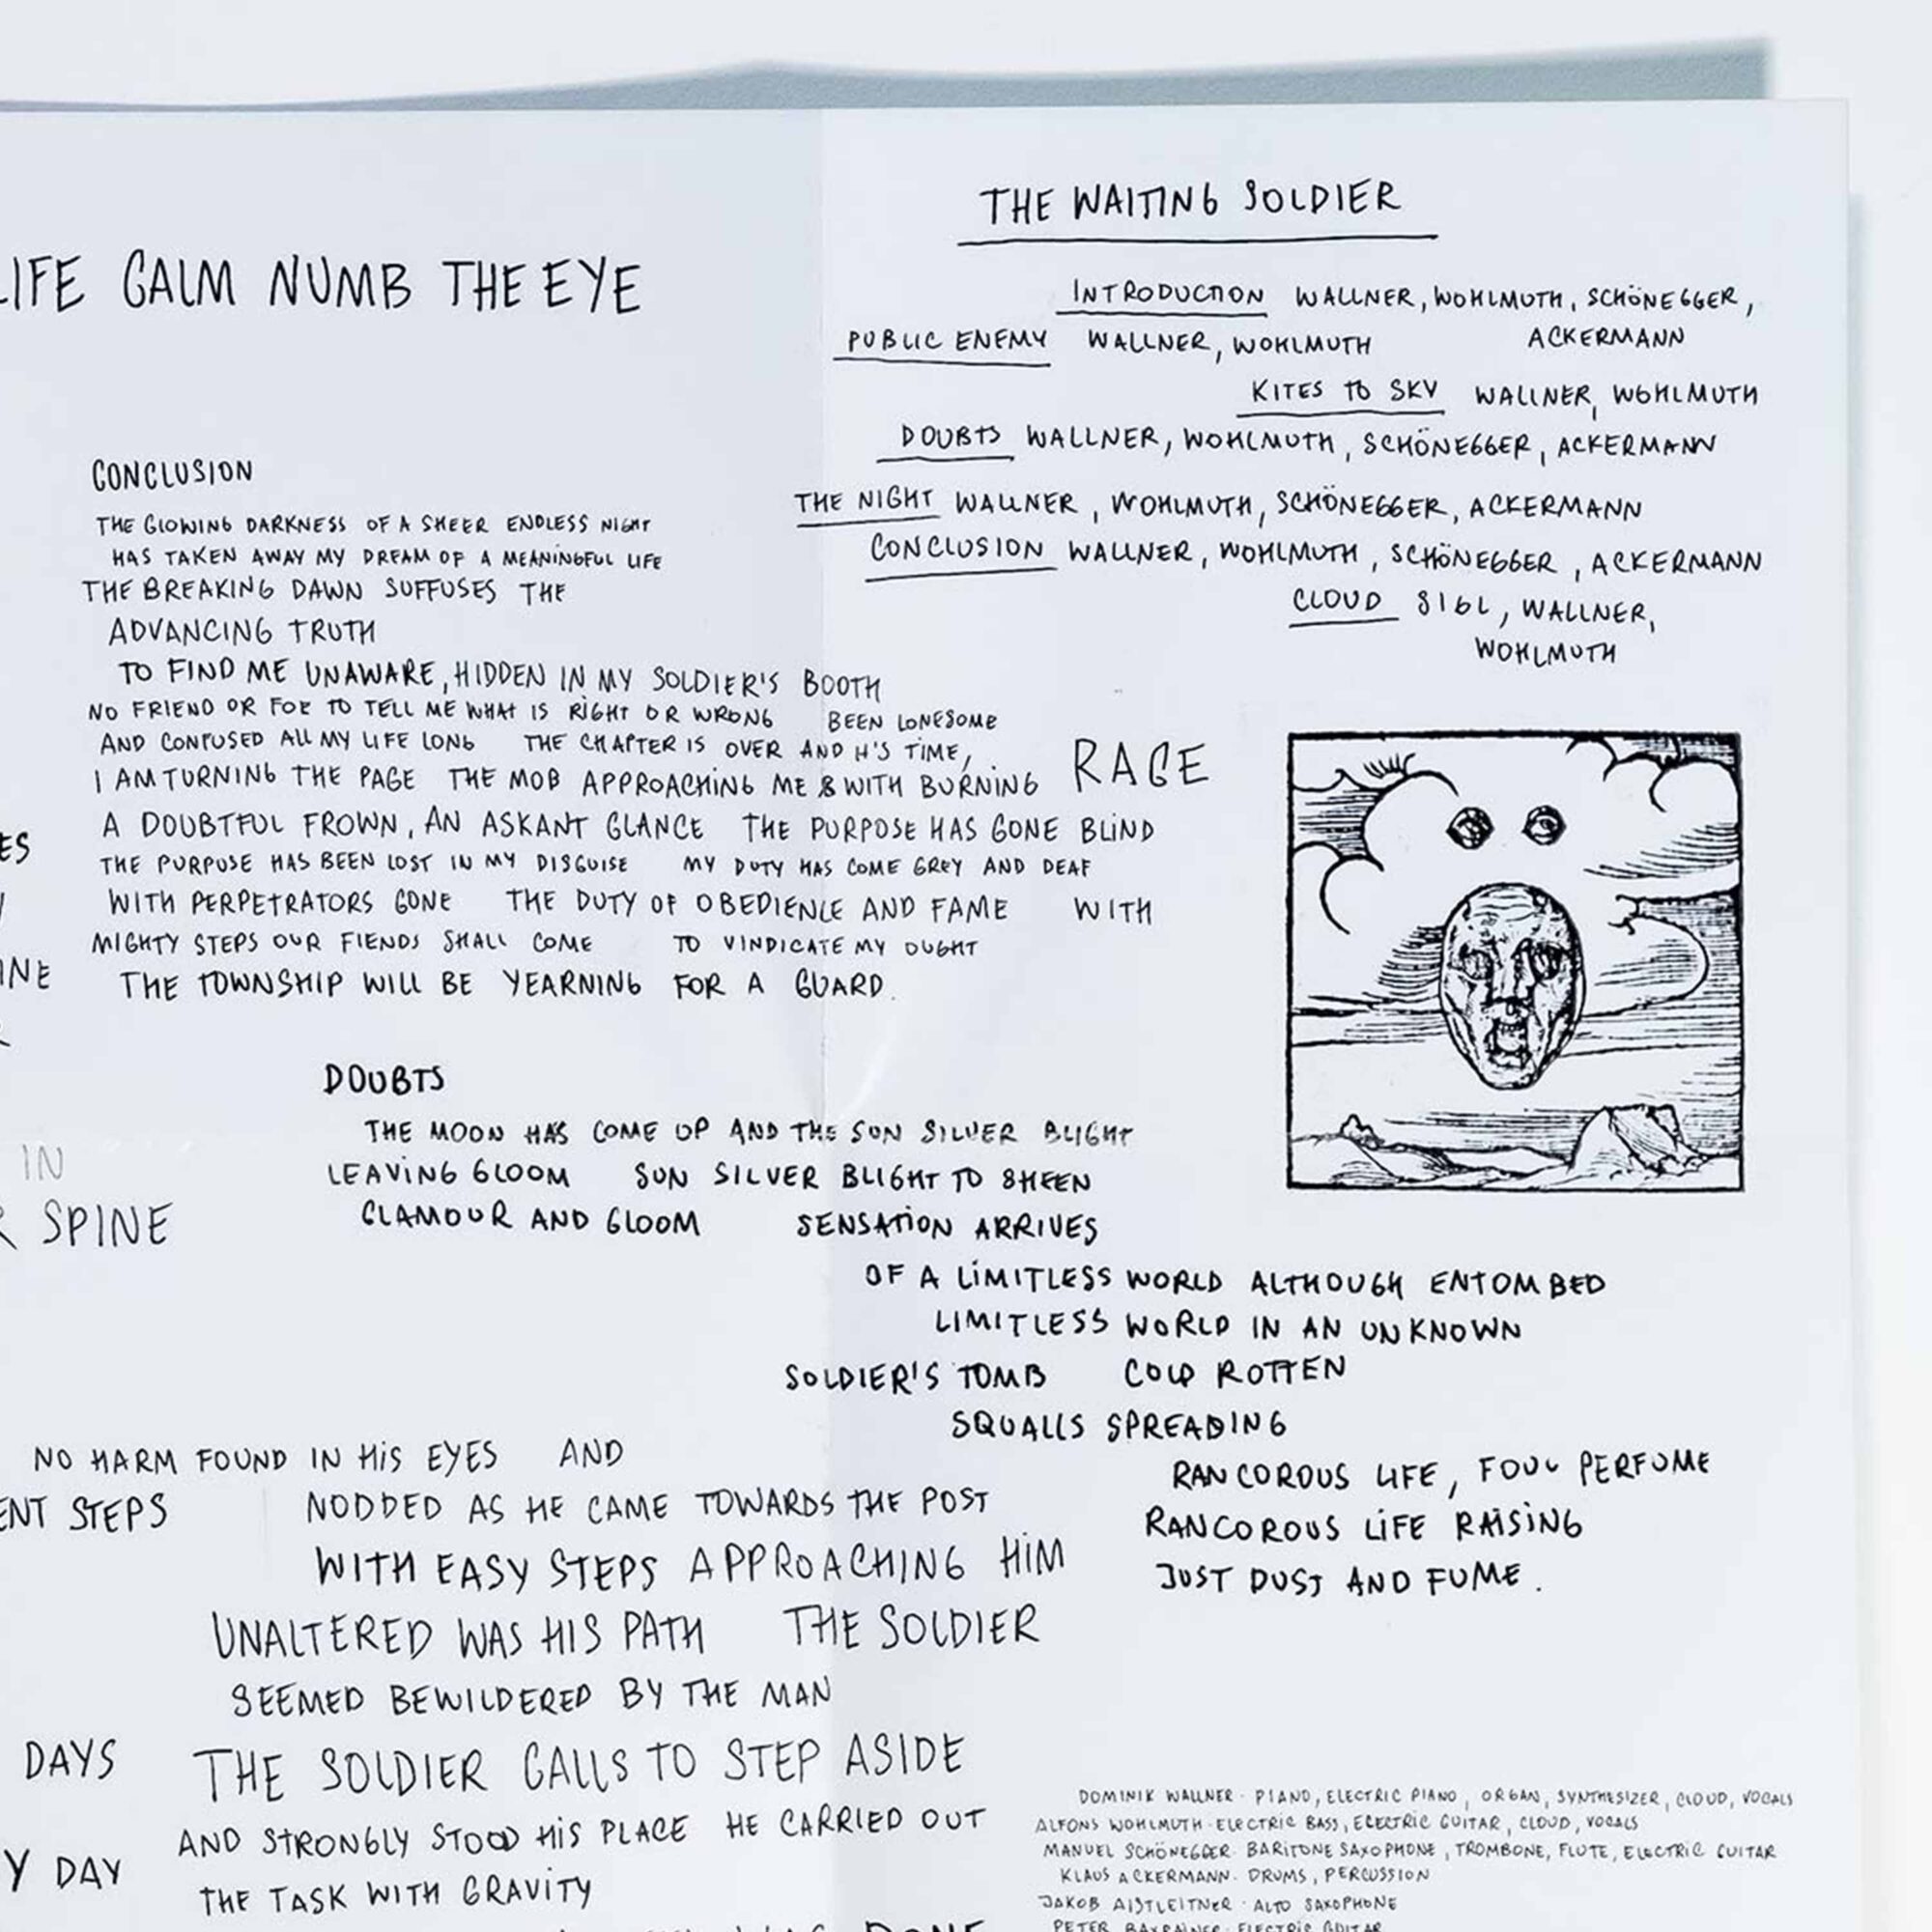 THE WAITING SOLDIER
INTRODUCTION WALLNER, WOHLMUTH, SCHÖNEGGER,
ACKERMANN
PUBLIC ENEMY WALLNER, WOHLMUTH
KITES TO SKY WALLNER, WOHLMUTH
DOUBTS WALLNER, WOHLMUTH, SCHÖNEGGER, ACKERMANN
THE NIGHT WALLNER, WOHLMUTH, SCHÖNEGGER, ACKERMANN
CONCLUSION WALLNER, WOHLMUTH, SCHÖNEGGER, ACKERMANN
CLOUD SIGL, WALLNER,
WOHLMUTH
LIFE CALM NUMB THE EYE
CONCLUSION
THE GLOWING DARKNESS OF A SHEER ENDLESS NIGHT
HAS TAKEN AWAY MY DREAM OF A MEANINGFUL LIFE
THE BREAKING DAWN SUFFUSES THE
ADVANCING TRUTH
TO FIND ME UNAWARE, HIDDEN IN MY SOLDIER'S BOOTH
NO FRIEND OR FOE TO TELL ME WHAT IS RIGHT OR WRONG BEEN LONESOME
AND CONFUSED ALL MY LIFE LONG THE CHAPTER IS OVER AND IT'S TIME,
I AM TURNING THE PAGE THE MOB APPROACHING ME & WITH BURNING RAGE
A DOUBTFUL FROWN, AN ASKANT GLANCE THE PURPOSE HAS GONE BLIND
THE PURPOSE HAS BEEN LOST IN MY DISGUISE MY DUTY HAS COME GREY AND DEAF
WITH PERPETRATORS GONE THE DUTY OF OBEDIENCE AND FAME WITH
MIGHTY STEPS OUR FIENDS SHALL COME TO VINDICATE MY OUGHT
THE TOWNSHIP WILL BE YEARNING FOR A GUARD.
ES
Y
INE
R
IN
R SPINE
DOUBTS
THE MOON HAS COME UP AND THE SUN SILVER BLIGHT
LEAVING GLOOM SUN SILVER BLIGHT TO SHEEN
GLAMOUR AND GLOOM SENSATION ARRIVES
OF A LIMITLESS WORLD ALTHOUGH ENTOMBED
LIMITLESS WORLD IN AN UNKNOWN
SOLDIER'S TOMB COLD ROTTEN
SQUALLS SPREADING
RANCOROUS LIFE, FOUL PERFUME
RANCOROUS LIFE RAISING
JUST DUST AND FUME.
NO HARM FOUND IN HIS EYES AND
ENT STEPS NODDED AS HE CAME TOWARDS THE POST
WITH EASY STEPS APPROACHING HIM
UNALTERED WAS HIS PATH THE SOLDIER
SEEMED BEWILDERED BY THE MAN
DAYS THE SOLDIER CALLS TO STEP ASIDE
AND STRONGLY STOOD HIS PLACE HE CARRIED OUT
Y DAY THE TASK WITH GRAVITY
DONE
DOMINIK WALLNER · PIANO, ELECTRIC PIANO, ORGAN, SYNTHESIZER, CLOUD, VOCALS
ALFONS WOHLMUTH · ELECTRIC BASS, ELECTRIC GUITAR, CLOUD, VOCALS
MANUEL SCHÖNEGGER · BARITONE SAXOPHONE, TROMBONE, FLUTE, ELECTRIC GUITAR
KLAUS ACKERMANN · DRUMS, PERCUSSION
JAKOB AISTLEITNER · ALTO SAXOPHONE
PETER ELECTRIC GUITAR